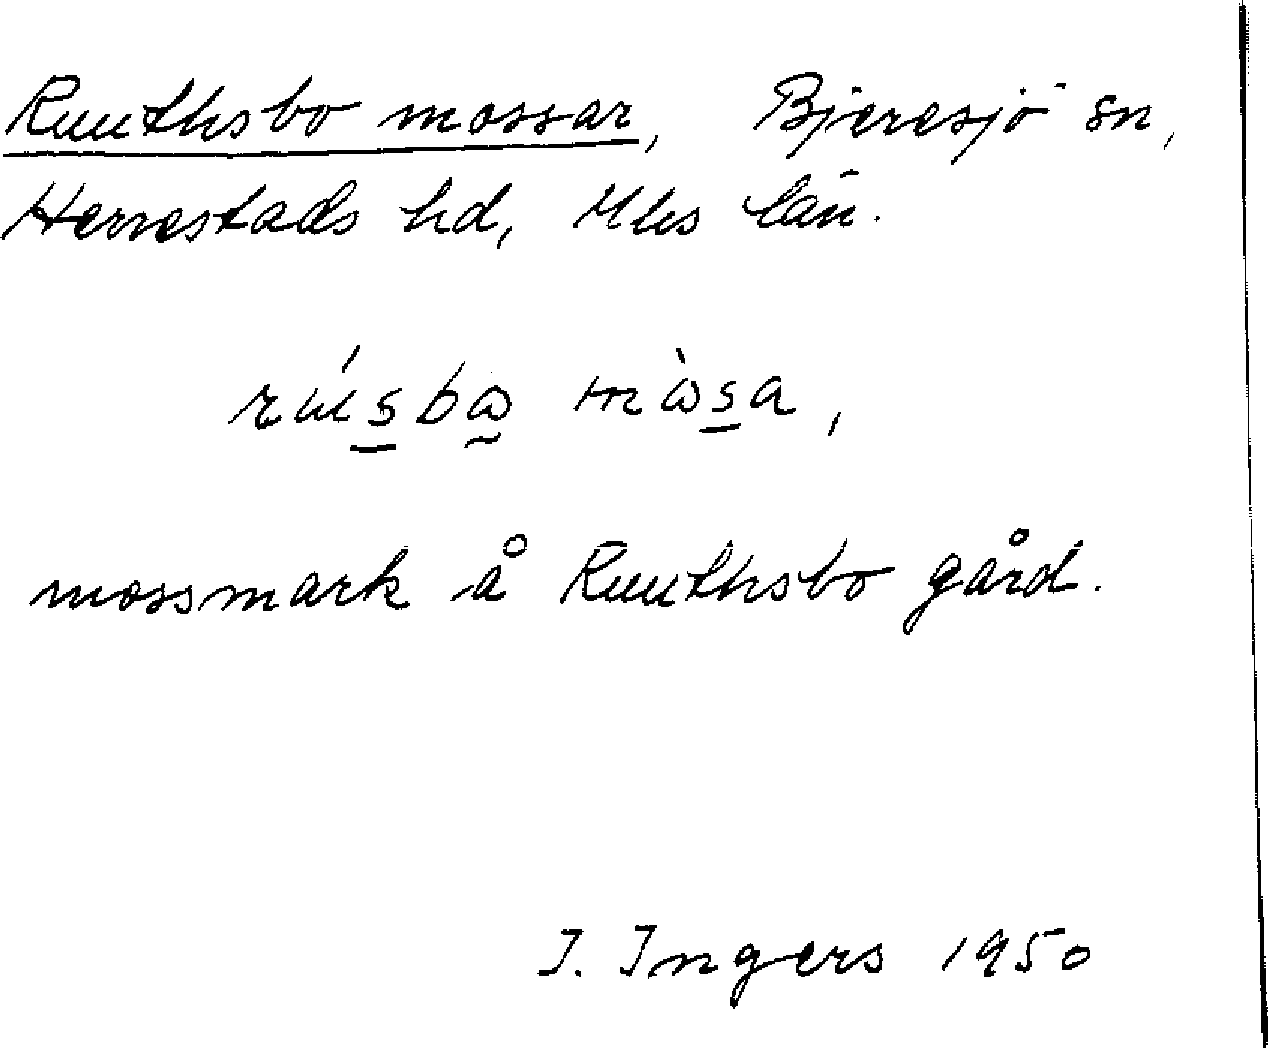 Ruuthsbo mossar, Bjeresjö sn,
Herrestads hd, Mhs län.
rúsbɷ mɷ̀sa,
mossmark å Ruuthsbo gård.
I. Ingers 1950